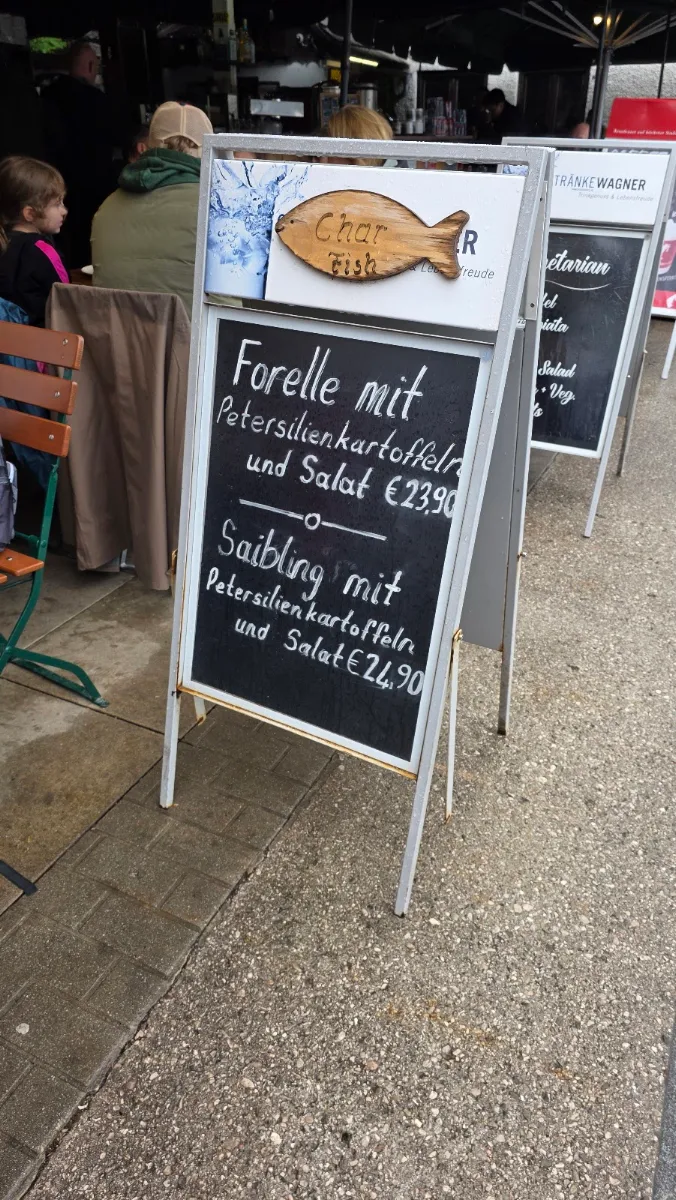 Char
Fish
ER
& Le
freude
Forelle mit
Petersilienkartoffeln
und Salat €23,90
Saibling mit
Petersilienkartoffeln
und Salat €24,90
TRÄNKEWAGNER
& Lebensfreude
etarian
iata
Salad
+ Veg.